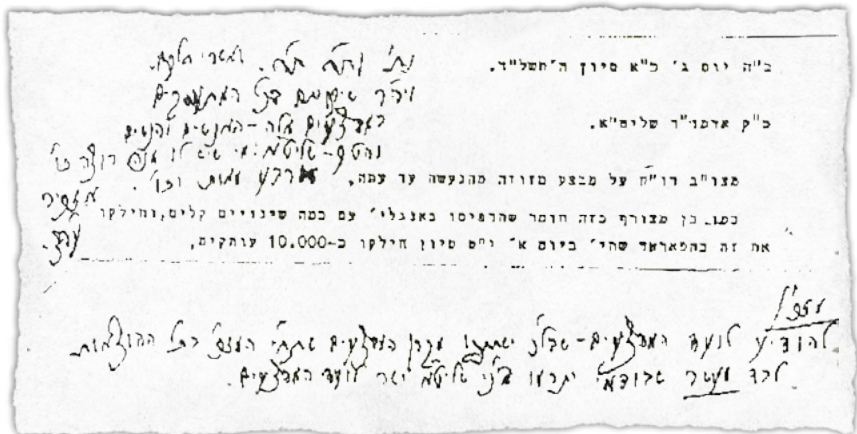 ב"ה יום ג' כ"א סיון ה'תשל"ד.
כ"ק אדמו"ר שליט"א.
מצו"ב דו"ח על מבצע מזוזה מהנעשה עד עתה.
כמו.כן מצורף בזה חומר שהדפיסו באנגלי' עם כמה שינויים קלים,וחילקו
את זה בהפאראד שהי' ביום א' י"ט סיון חילקו כ-10.000 עותקים.
נת' ות"ח ת"ח. ואשרי חלקם.
ויה"ר שיקוים בכל המתעסקים
במבצעים אלה - האנשים והנשים
והטף - שליט"א: מי שיש לו מנה רוצה כו'
ארבע מאות וכו'. אזכיר
עה"צ.
להודיע לועד המבצעים - שבל"נ המבצעים בכל ההוצאות
לבד מעשר שבודאי יתרמו שליט"א ישר לועד המבצעים.